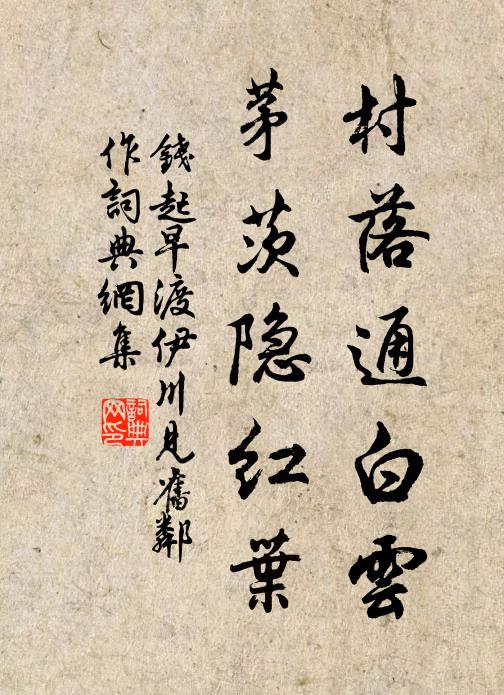 村落通白雲
茅茨隐红葉
錢起早渡伊川見舊鄰
作詞典網集
詞典网印